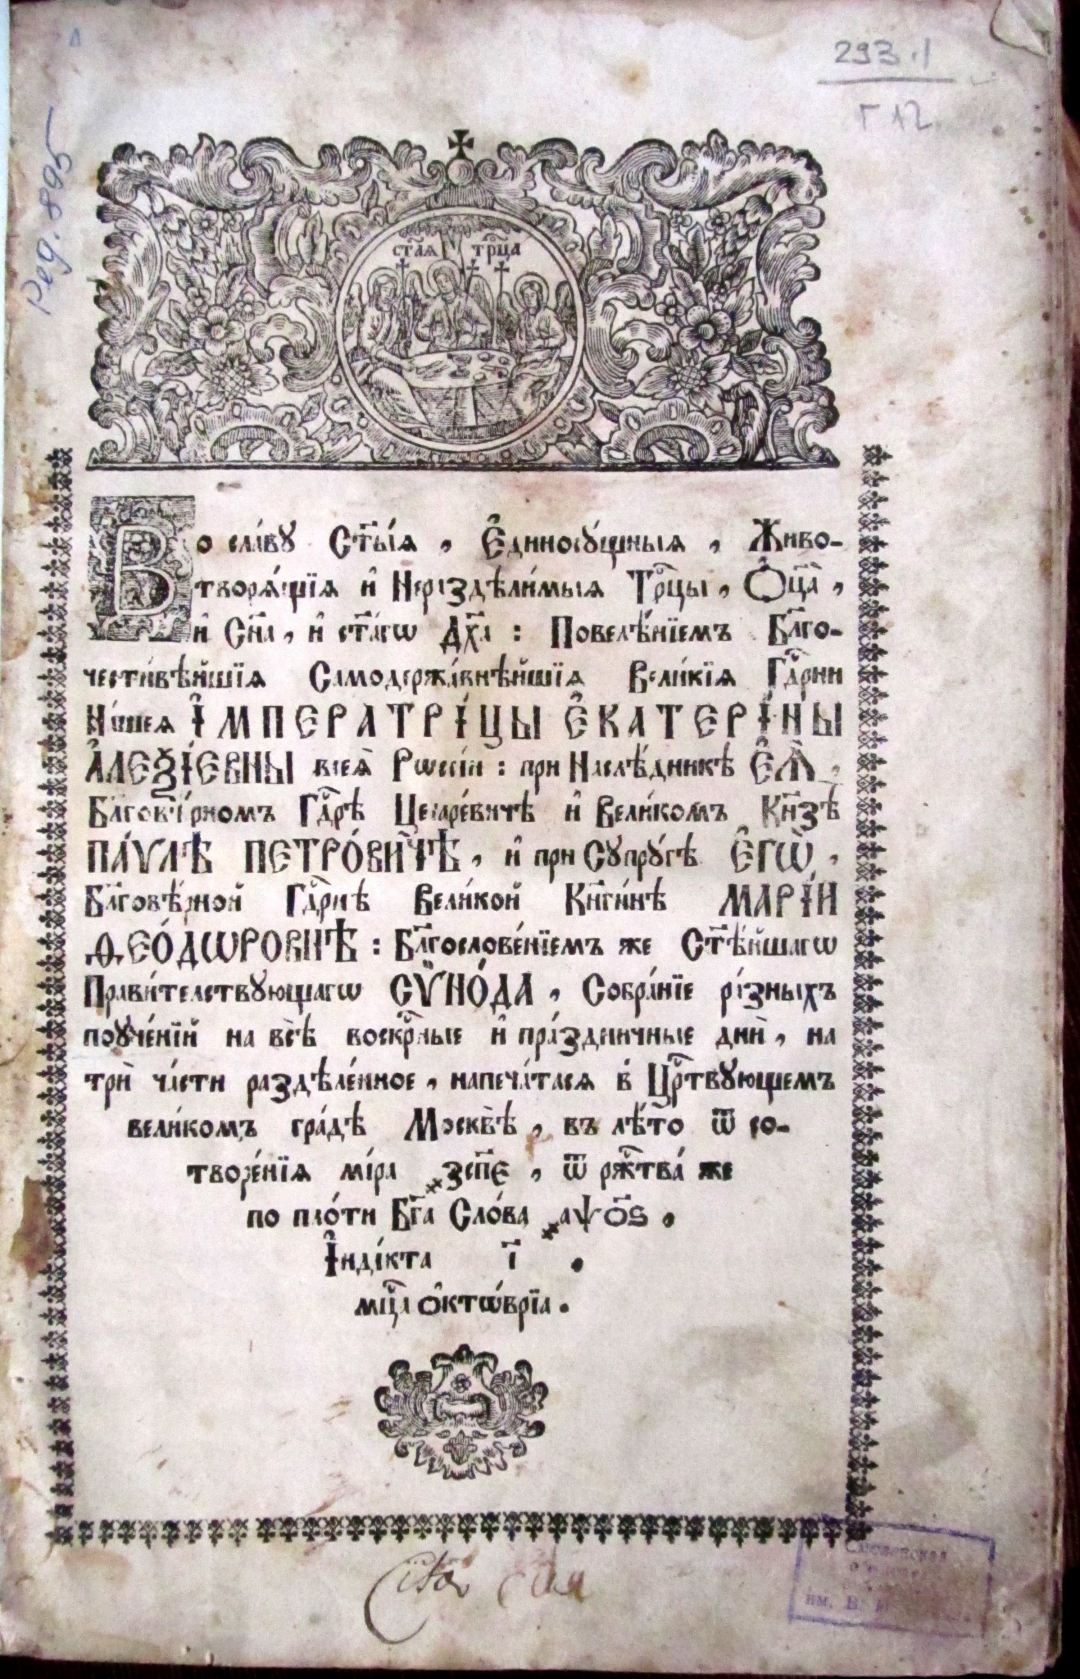 293.1
Г 12
Рег. 895
ст҃ая трⷪ҇ца
Во сла́вꙋ Ст҃ы́ѧ , Є҆диносꙋ́щныѧ , Живо-
творѧ́щїѧ и҆ Нераздѣли́мыѧ Трⷪ҇цы , Ѻ҆ц҃а̀ ,
и҆ Сн҃а , и҆ ст҃а́гѡ Дх҃а : Повелѣ́нїемъ Бл҃го-
чести́вѣйшїѧ Самодержа́внѣйшїѧ Вели́кїѧ Гдⷭ҇рни
На́шеѧ І҆МПЕРАТРІ́ЦЫ Є҆КАТЕРІ́НЫ
А҆ЛЕѮІ́ЕВНЫ всеѧ̀ Рѡссі́и : при Наслѣ́дникѣ Є҆Ѧ̀ ,
Бл҃говѣ́рномъ Гдⷭ҇рѣ Цесаре́вичѣ и҆ Вели́комъ Кн҃зѣ
ПА́ѴЛѢ ПЕТРО́ВИЧѢ , и҆ при Сꙋпрꙋ́гѣ Є҆ГѠ̀ ,
Бл҃говѣ́рной Гдⷭ҇рнѣ Вели́кой Кн҃ги́нѣ МАРІ́И
ѲЕО́ДѠРОВНѢ : Бл҃гослове́нїемъ же Ст҃ѣ́йшагѡ
Прави́телствꙋющагѡ СѴНО́ДА , Собра́нїе ра́зныхъ
поꙋче́нїй на всѣ̀ воскрⷭ҇ные и҆ пра́здничные дни̑ , на
три̑ ча́сти раздѣле́нное , напеча́тасѧ в̾ Црⷭ҇твꙋющемъ
вели́комъ гра́дѣ Москвѣ̀ , въ лѣ́то ѿ со-
творе́нїѧ мі́ра ҂зсп҃є , ѿ рж҃тва́ же
по пло́ти Бг҃а Сло́ва ҂аѱо҃ѕ .
І҆нді́кта і҃ .
мц҃а ѻ҆ктѡ́врїа .